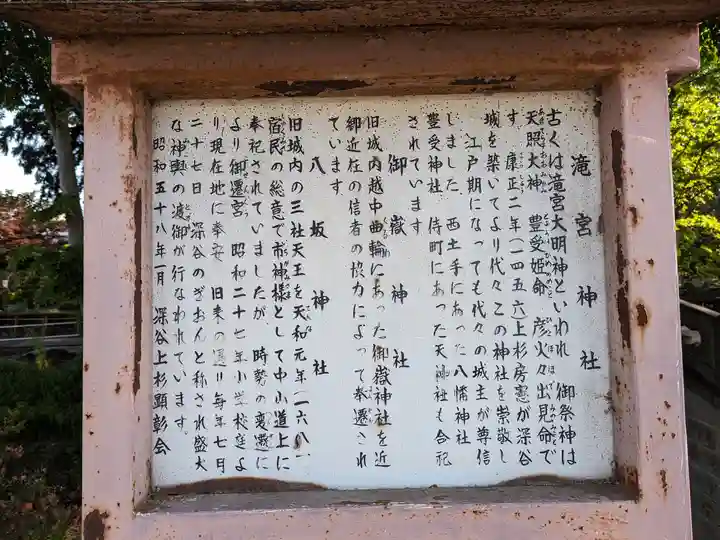 滝宮神社
古くは滝宮大明神といわれ 御祭神は
天照大神 豊受姫命 彦火々出見命で
す 康正二年(一四五六上杉房憲が深谷
城を築いてより代々この神社を崇敬し
江戸期になっても代々の城主が尊信
しました 西土手にあった八幡神社
豊受神社 侍町にあった天神社も合祀
されています
御嶽神社
旧城内越中曲輪にあった御嶽神社を近
郷近在の信者の協力によって奉遷され
ています
八坂神社
旧城内の三社天王を天和元年(一六八一
宿民の総意で市神様として中小道上に
奉祀されていましたが、時勢の変遷に
より御遷宮 昭和二十七年小学校庭よ
り現在地に奉安 旧来の通り毎年七月
二十七日 深谷のぎおんと称され盛大
な神輿の渡御が行なわれています。
昭和五十八年一月 深谷上杉顕彰会